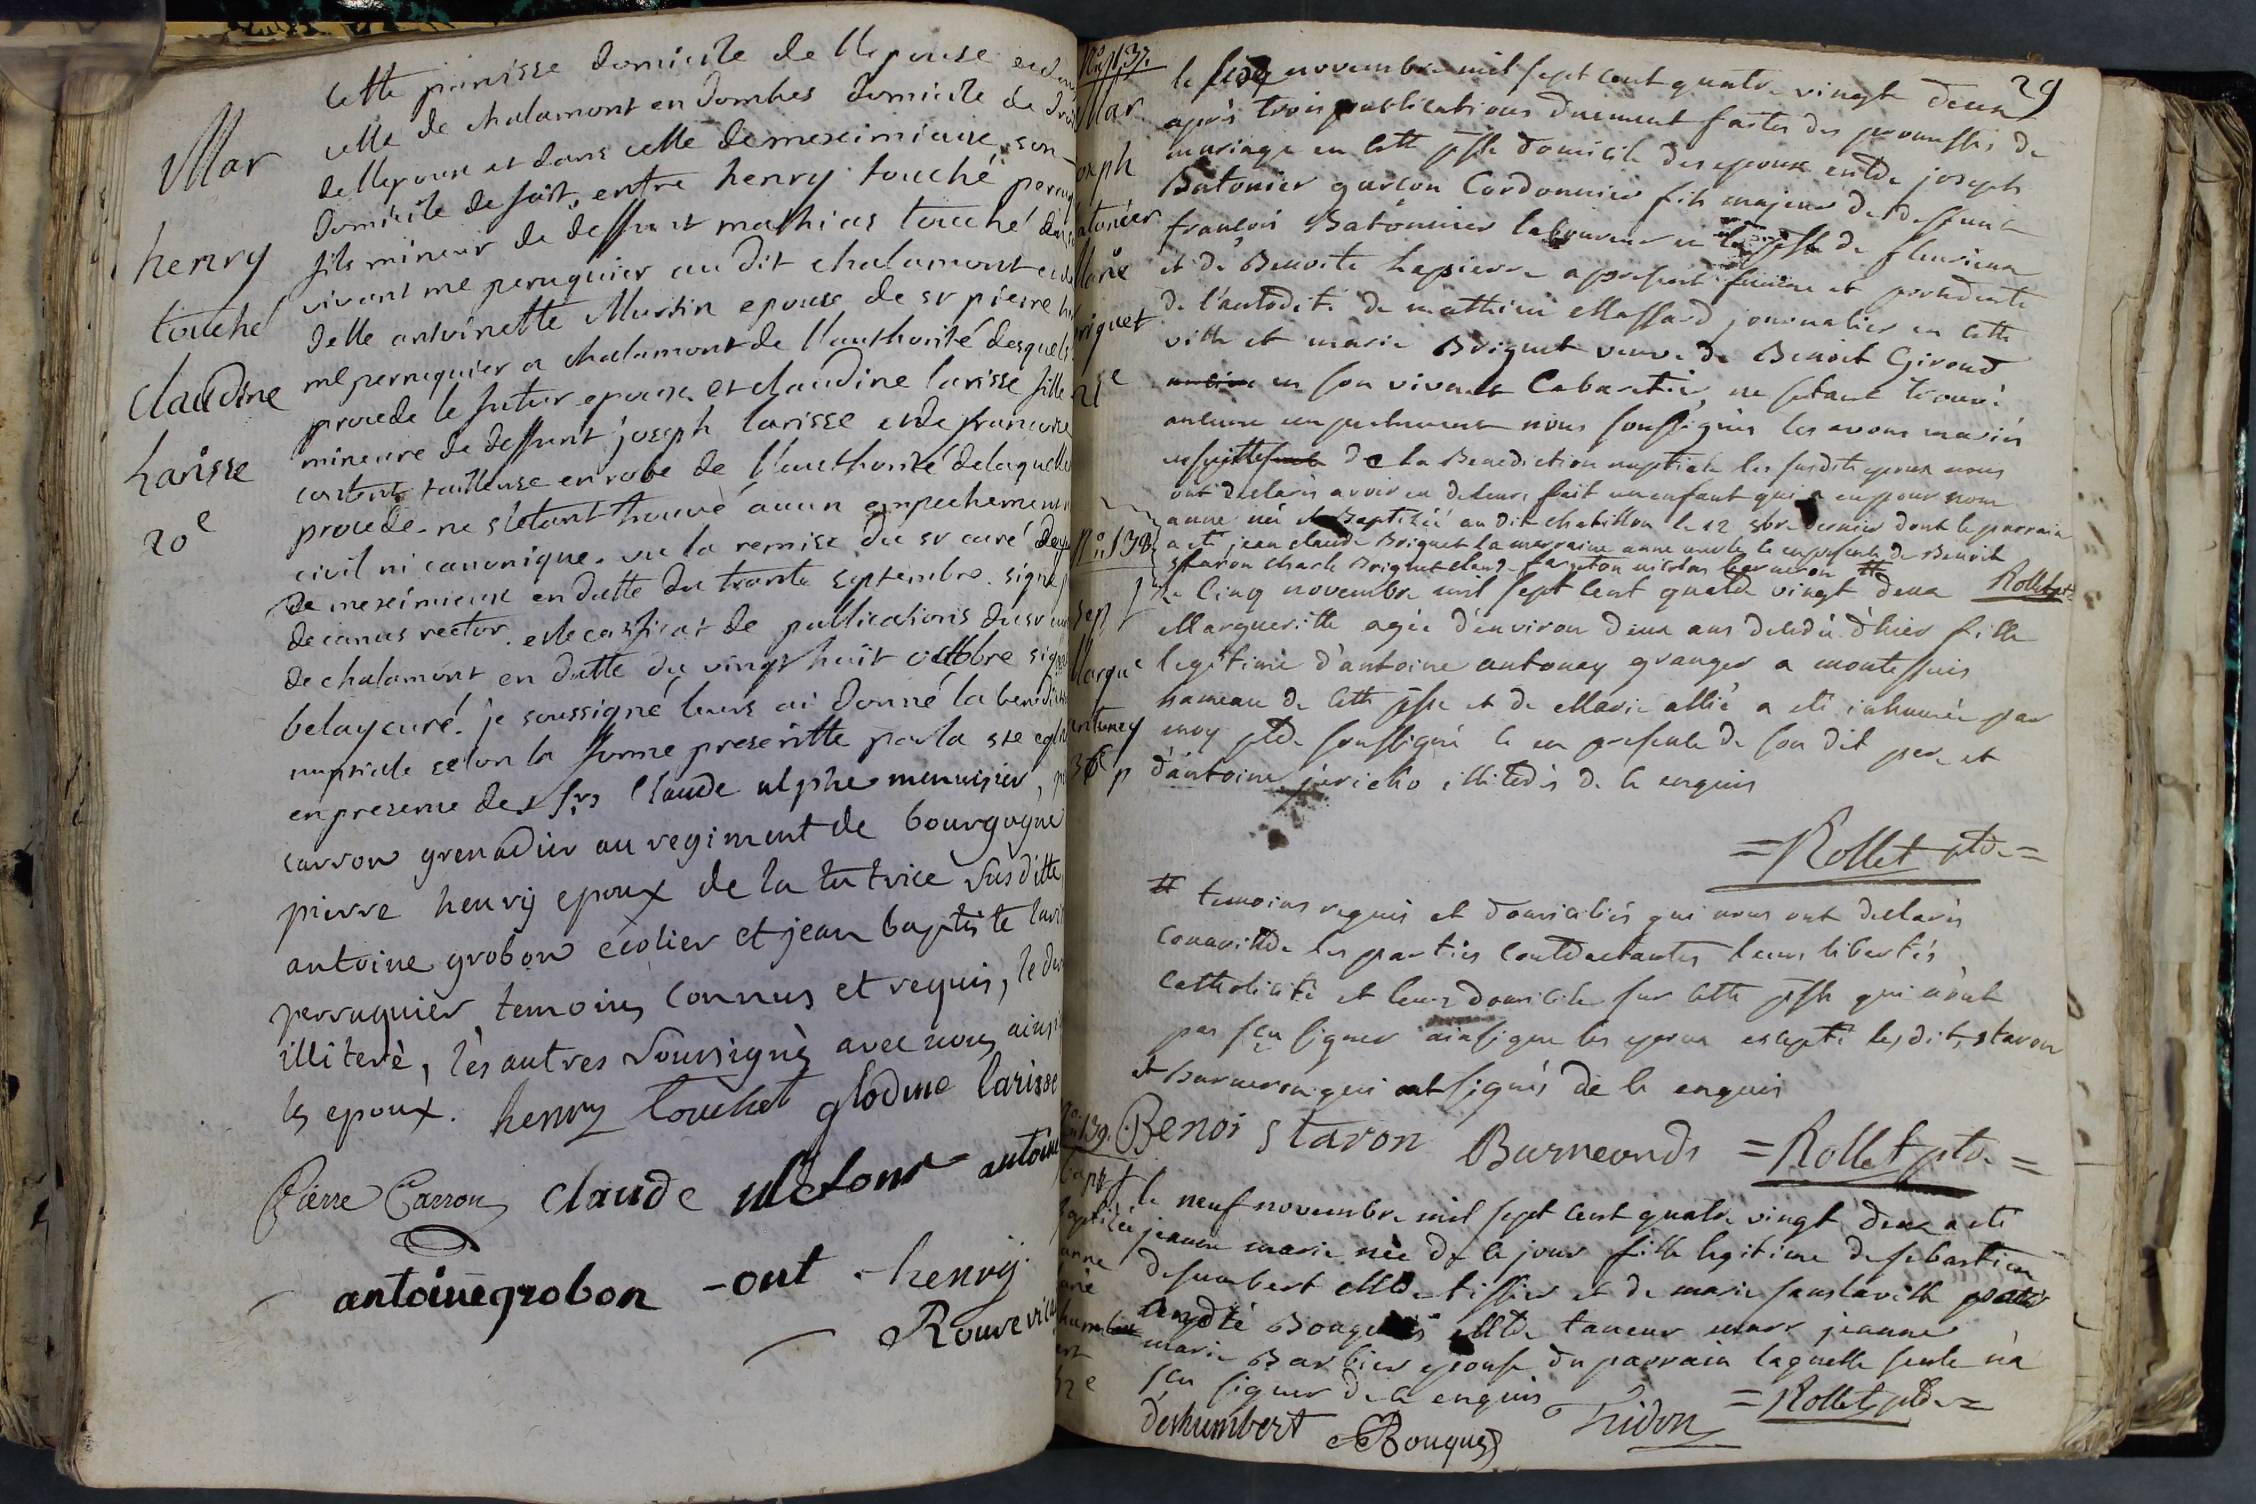 Mar
henry
touché
Claudine
Larisse
20e
Cette paroisse domicile de l'epouse et dans
celle de chalamont en Dombes domicile de droit
de l'epoux et dans celle demeximieux son
domicile de fait, entre henry touché perruq
fils mineur de deffunt mathias touché de son
vivant me peruquier au dit chalamont et de
delle antoinette Martin epouse de sr pierre hen
me perruquier a chalamont de l'authorité desquels
procede le futur epoux et claudine larisse fille
mineure de deffunt joseph larisse et de francoise
content tailleuse en robe de l'aucthorité de laquelle
procede. ne s'etant trouvé aucun empechement
civil ni canonique. vu la remise du sr curé
de meximieux en datte du trante septembre. signé
decanus rector. et le certificat de publications du sr curé
de chalamont en datte du vingt huit octobre signé
belay curé. je soussigné leurs ai donné la benedict
nuptiale selon la forme prescritte par la ste eglise
en presence des srs Claude alphe menuisier,
carron grenadier au regiment de bourgogne
pierre henrij epoux de la tutrice susditte,
antoine grobon écolier et jean baptiste lari
perruquier temoins connus et requis, le der
illiteré, lès autres soussignés avec nous ainsi
les epoux. henry touchet glodine larisse
Pierre Carron claude antoine
antoine grobon - ont - henrij
Rouve
29
No 137.
Mar
oseph
atonier
Marie
riquet
21e
le cinq novembre mil sept cent quatre vingt deux
après trois publications duement faites des promesses de
mariage en cette psse domicile des epoux entre joseph
Batonier garçon Cordonnier fils majeur de deffunt
françois Batonnier laboureur en la psse de fleurieux
et de Benoite Lapierre a present femme et procedente
de l'autorité de mathieu Massard journalier en cette
ville et marie Briquet veuve de Benoit Giroud
en son vivant Cabaretier, ne s'etant trouvé
aucun empechement nous soussignés les avons mariés
ensuitte de la Benediction nuptiale les susdits epoux nous
ont declarés avoir eu de leurs fait un enfant qui a eu pour nom
anne née et Baptisée au dit chatillon le 12 8bre dernier dont le parrain
a eté jean claude Briquet la marraine anne en presence de Benoit
staron charle Briquet claude nicolas #
Rollet ptre
No 138
sep
Margue
antoney
36e p
Le Cinq novembre mil sept cent quatre vingt deux
Margueritte agée d'environ deux ans decedée d'hier fille
legitime d'antoine antonay granger a montessuis
hameau de cette psse et de Marie allié a eté inhumée par
moy ptre soussigné ce en presence de son dit pere et
d'antoine jericho illiterés de ce enquis
= Rollet ptre =
# temoins requis et domiciliés qui nous ont declarés
connaittre les parties contractantes leurs libertés
Catholicité et leurs domicile sur cette psse qui n'ont
pas sçu signer ainsi que les epoux excepté les dits staron
et Burneron qui ont signés de ce enquis
Benoi staron = Rollet ptre =
No 139.
Bapt
Baptisée
le neuf novembre mil sept cent quatre vingt deux a eté
jeanne marie née de ce jour fille legitime de sebastien
deshumbert Mtre tissier et de marie
andré Bouquet Mtre taneur marr jeanne
marie Barbier epouse du parrain laquelle seule n'a
sçu signer de ce enquis
= Rollet ptre =
deshumbert Bouquet